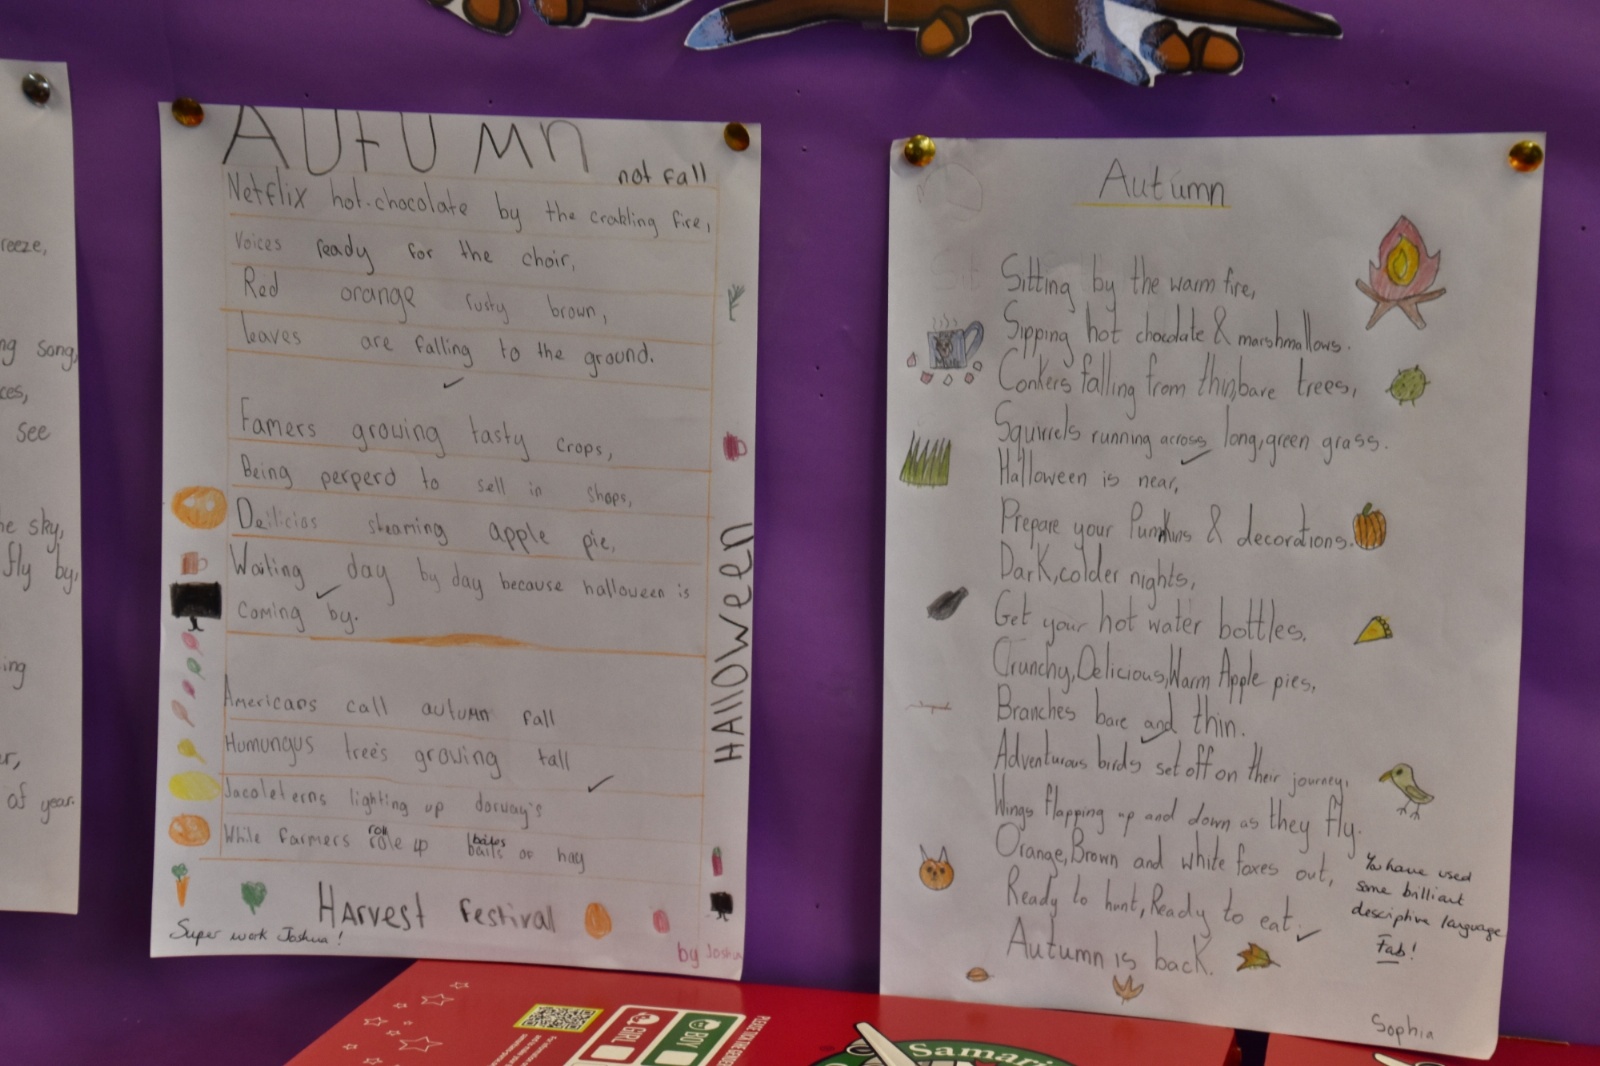 reeze,
ng song,
ces,
see
he sky,
fly by,
ing
er,
of year.
AUTUMN
not fall
Netflix hot-chocolate by the crakling fire,
Voices ready for the choir,
Red orange rusty brown,
leaves are falling to the ground.
Famers growing tasty crops,
Being perperd to sell in shops,
Deilicios steaming apple pie,
Waiting day by day because halloween is
coming by.
Americans call autumn fall
Humungus tree's growing tall
Jacoleterns lighting up dorway's
While farmers role up bails of hay
roll
bales
HAllOween
HArvest festival
Super work Joshua!
by Joshua
Autumn
Sitting by the warm fire,
Sipping hot chocolate & marshmallows.
Conkers falling from thin,bare trees,
Squirrels running across long,green grass.
Halloween is near,
Prepare your Pumkins & decorations.
Dark,colder nights,
Get your hot water bottles.
Crunchy,Delicious,Warm Apple pies,
Branches bare and thin.
Adventurous birds set off on their journey,
Wings flapping up and down as they fly.
Orange,Brown and white foxes out,
Ready to hunt,Ready to eat.
Autumn is back.
You have used
some brilliant
descriptive language
Fab!
Sophia
GIRL
BOY
Samari